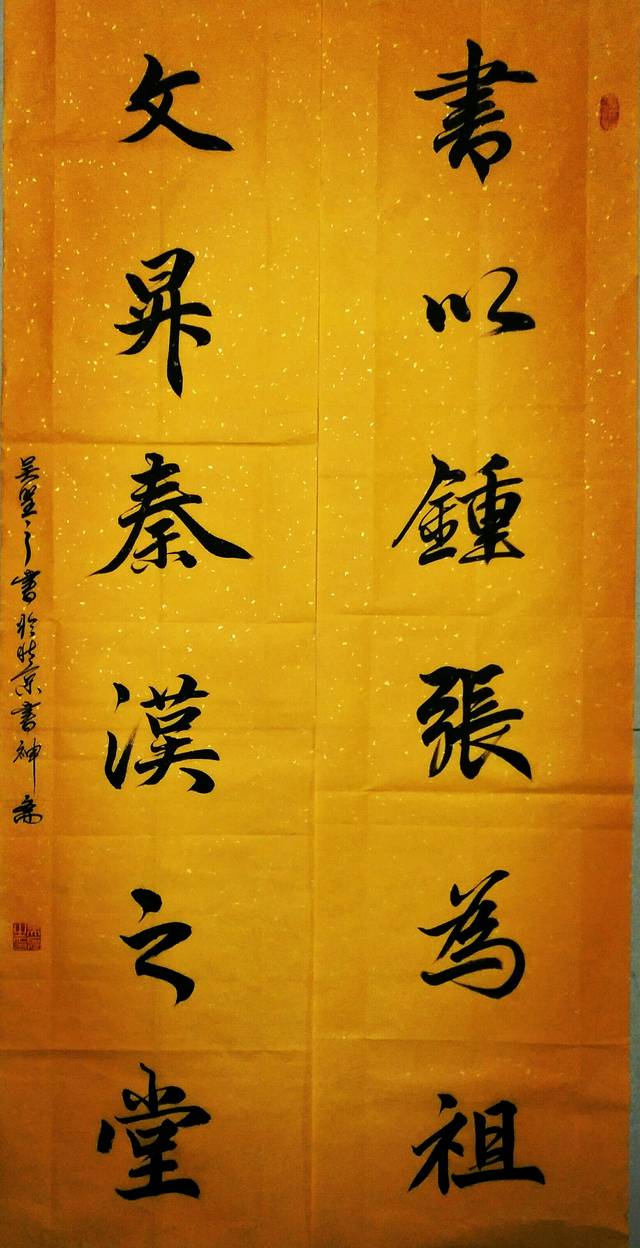 書以鍾張為祖
文昇秦漢之堂
吴堅之書於北京書神斋